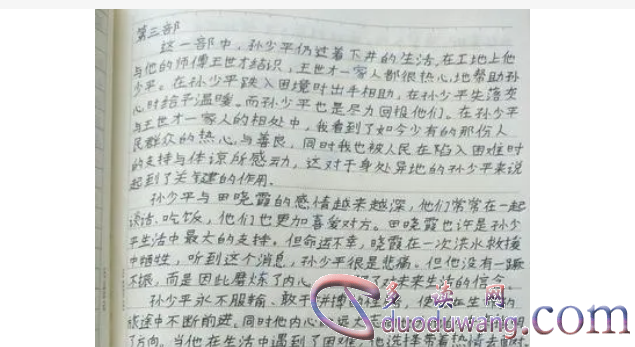 第三部
这一部中，孙少平仍过着下井的生活，在工地上他
与他的师傅王世才结识，王世才一家人都很热心地帮助孙
少平。在孙少平跌入困境时出手相助，在孙少平失落灰
心时给予温暖。而孙少平也是尽力回报他们。在孙少平
与王世才一家人的相处中，我看到了如今少有的那份人
民群众的热心与善良，同时我也被人民在陷入困难时
的支持与体谅所感动，这对于身处异地的孙少平来说
起到了关键的作用。
孙少平与田晓霞的感情越来越深，他们常常在一起
谈话、吃饭，他们也更加喜爱对方。田晓霞也许是孙少
平生活中最大的支持。但命运不幸，晓霞在一次洪水救援
中牺牲，听到这个消息，孙少平很是悲痛。但他没有一蹶
不振，而是因此磨炼了内心，了对未来生活的信念
孙少平永不服输、敢于拼搏的，使在生的
旅途中不断前进。同时他内心远大
了方向。当他在生活中遇到了困难，他选择带着热情去面对
多读网
duoduwang.com